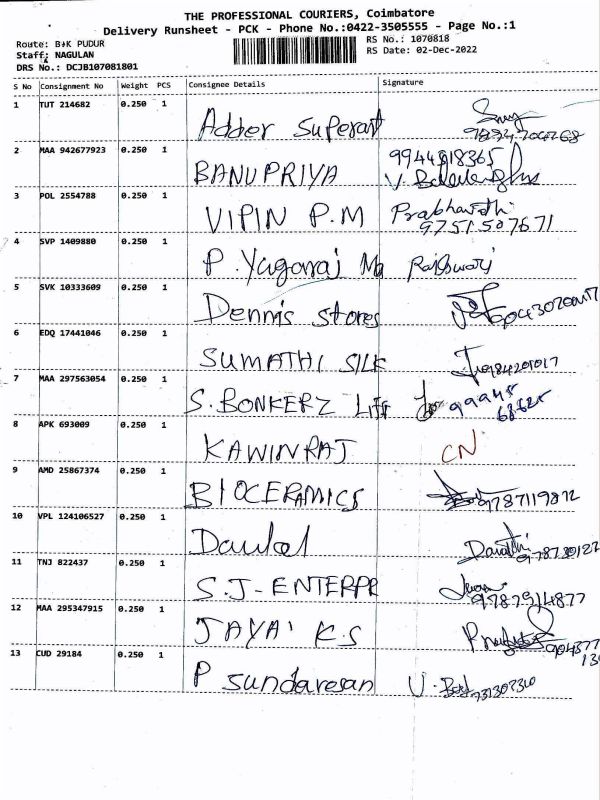 THE PROFESSIONAL COURIERS, Coimbatore
Delivery Runsheet - PCK - Phone No.:0422-3505555 - Page No.:1
Route: B*K PUDUR RS No.: 1070818
Staff: NAGULAN RS Date: 02-Dec-2022
DRS No.: DCJB107081801
S No Consignment No Weight PCS Consignee Details Signature
1 TUT 214682 0.250 1
Adder
2 MAA 942677923 0.250 1 9944818365
BANUPRIYA
3 POL 2554788 0.250 1 Prabhavathi
VIPIN P.M 9751507671
4 SVP 1409880 0.250 1
P. Yugaraj Ma Rajeswari
5 SVK 10333609 0.250 1
Dennis stores
6 EDQ 17441046 0.250 1
SUMATHI SILK
7 MAA 297563054 0.250 1
S. BONKERZ LIFF 99945
8 APK 693009 0.250 1
KAWINRAJ CN
9 AMD 25867374 0.250 1
BIOCERAMICS 9787119872
10 VPL 124106527 0.250 1
11 TNJ 822437 0.250 1
S.J-ENTERPR
12 MAA 295347915 0.250 1
JAYA' K.S
13 CUD 29184 0.250 1
P Sundaresan